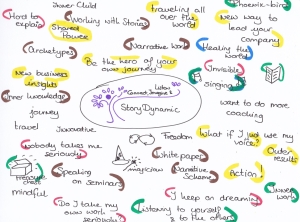 Inner Child
Hard to explain
Shared Power
Working with Stories
traveling all over the world
Phoenix-bird
New way to lead your company
Archetypes
Narrative Work
Healing the world
Be the hero of your own journey
Invisible
New business insights
Listen
Connect, Imagine &
StoryDynamic
Singing
Inner knowledge
journey
want to do more coaching
travel
Innovative
Freedom
What if I just use my voice?
Nobody takes me seriously
magician
White paper
Outer results
treasure chest
mindful
Speaking on seminars
Narrative Scheme
Action!
Do I take my own work seriously
I keep on dreaming
Listening to yourself & to the others
Inner work